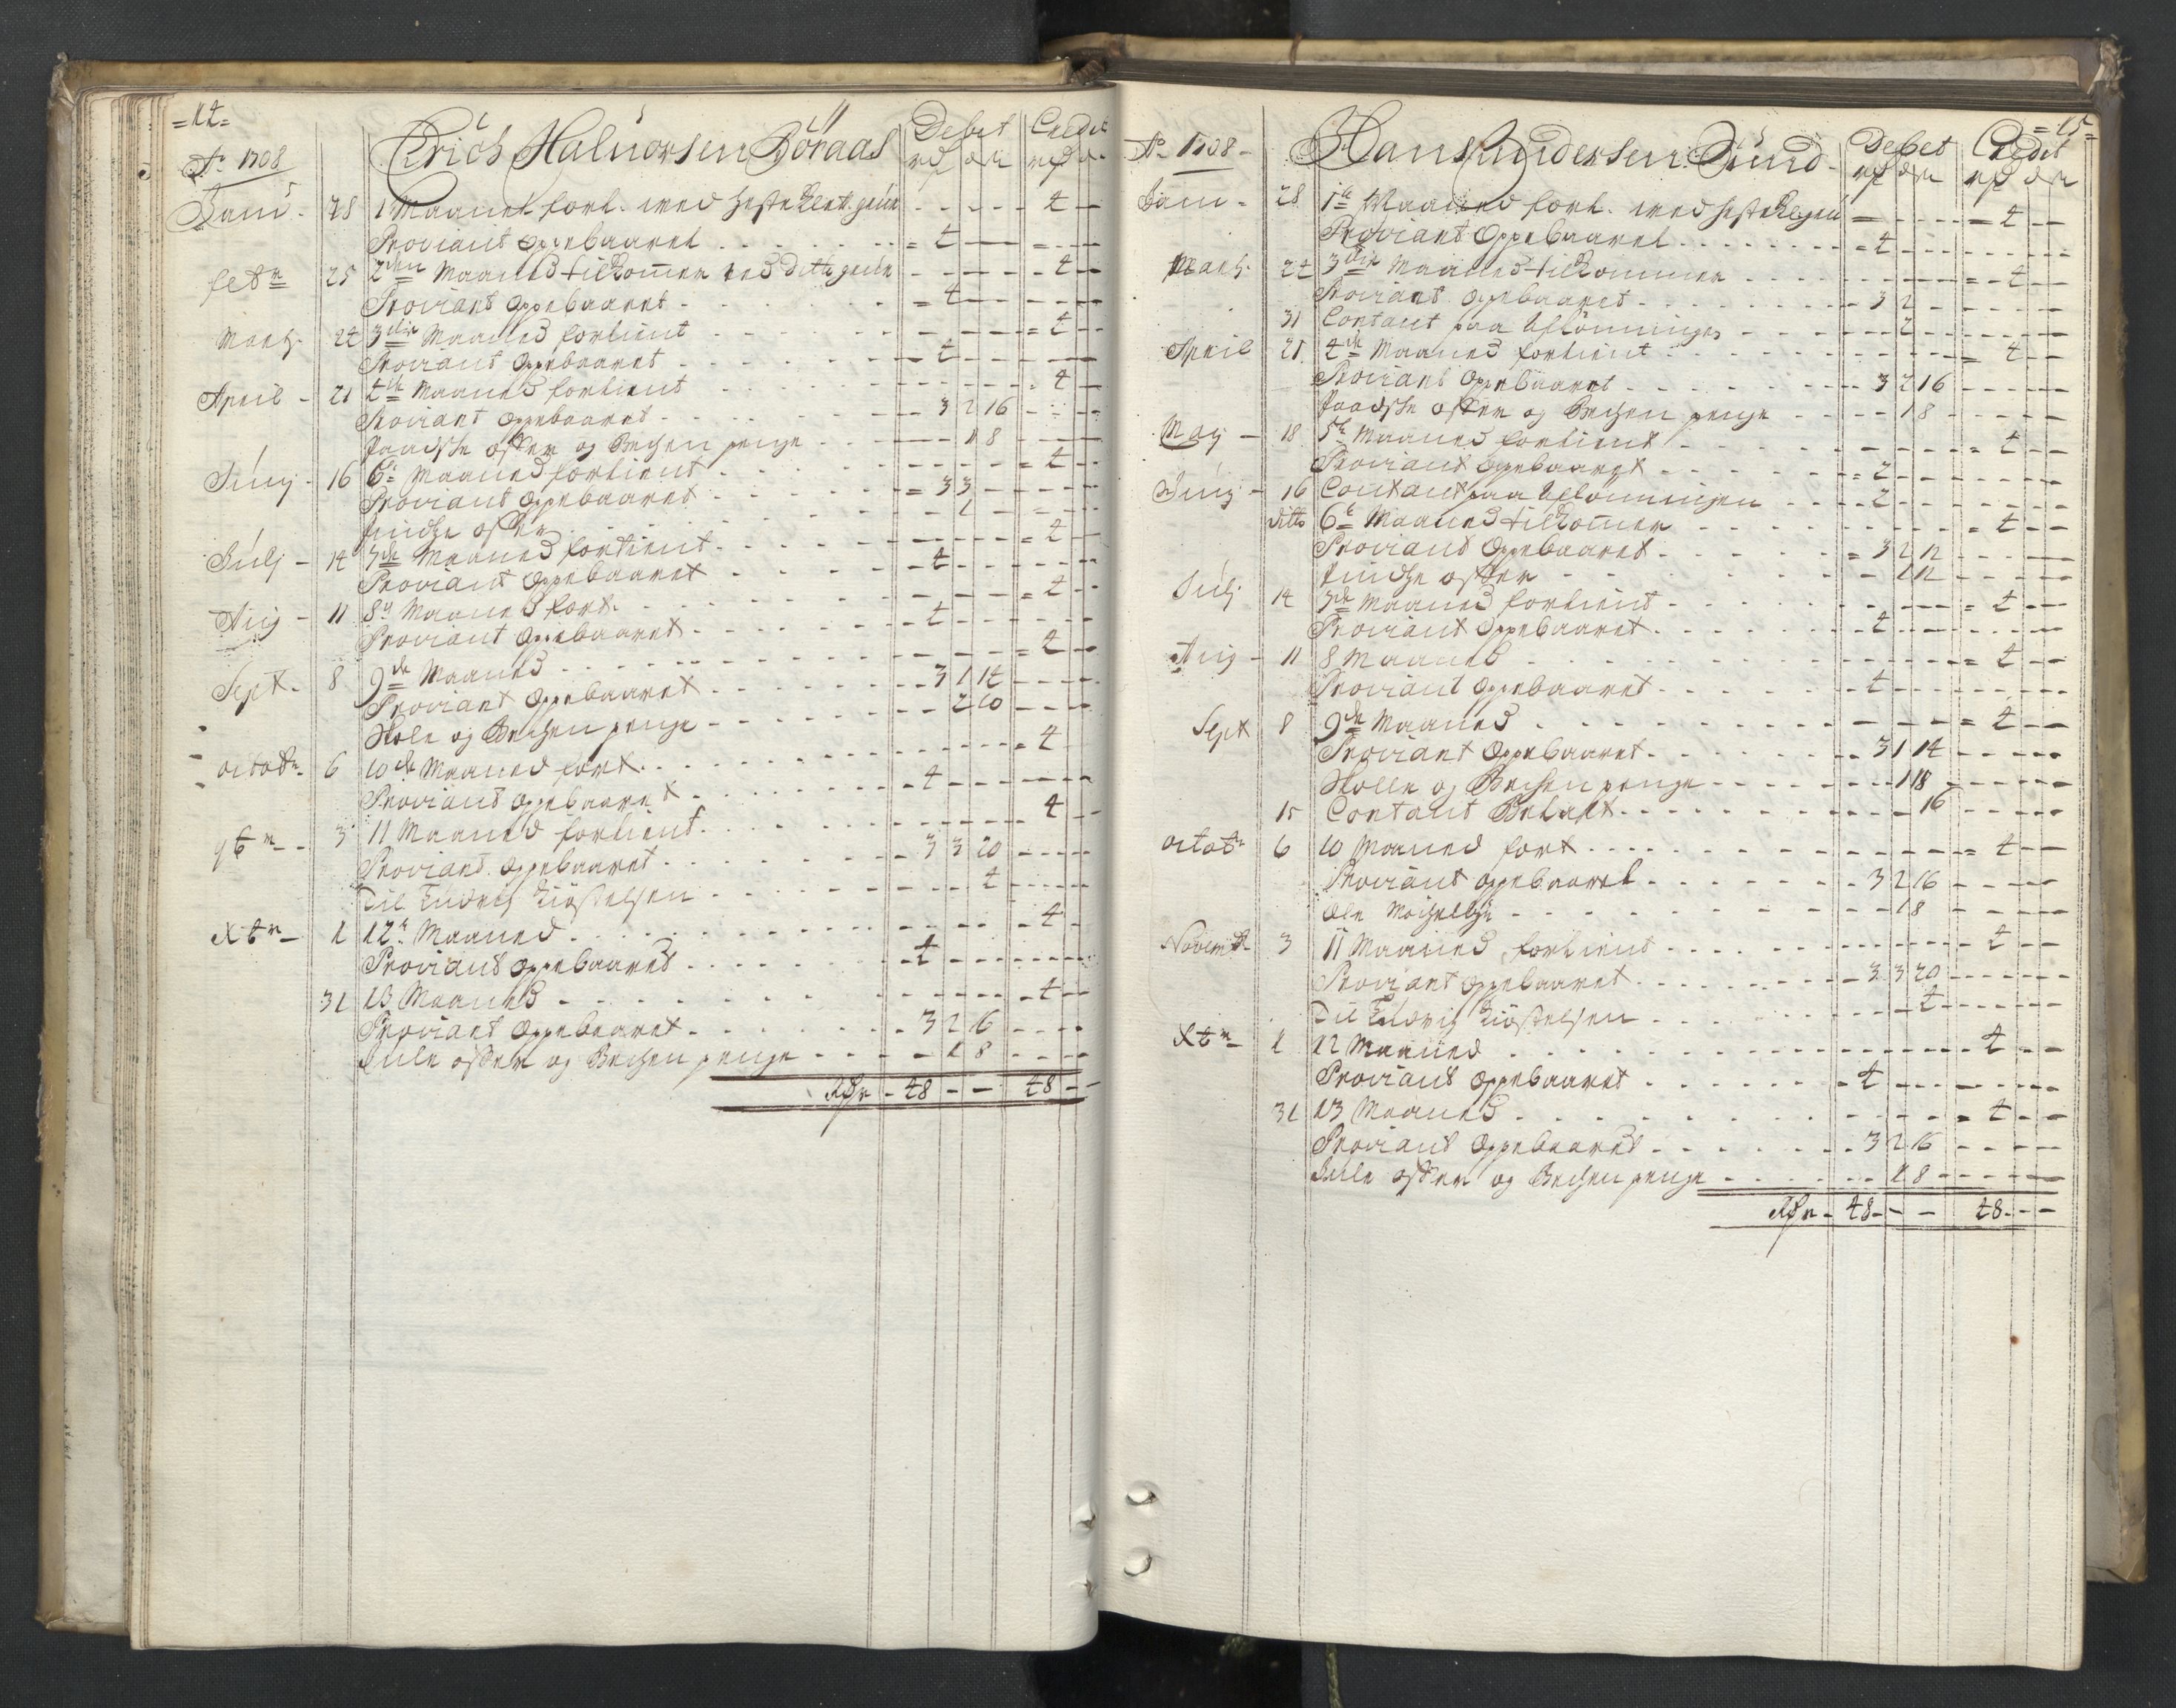 =14=
Ao 1708
Erich Halvorsen Böraas
Debet Credit
rd ort rd o
Janu - 28 1 Maanet fort. med heste - - - - - 4 -
Proviant Oppebaaret - - - = 4 - - = - -
febr 25 2den Maaned tilkommer med ditto - - - - - 4 -
Proviant Oppebaaret - - - = 4 - - - - -
Marty 24 3die Maaned fortient - - - - = 4 - -
Proviant Oppebaaret - - - 4 - - - - -
April - 21 4de Maaned fortient - - - - 4 -
Proviant Oppebaaret - - - 3 2 16 - - -
og penge - - - - 1 8 - - -
Juny - 16 6te Maaned fortient - - - - = 4 - -
Proviant Oppebaaret - - - = 3 3 - - - -
- - - 1 - - - -
July - 14 7de Maaned fortient - - - - = 4 - -
Proviant Oppebaaret - - - 4 - - - - -
Aug - 11 8de Maaned fort. - - - - = 4 - -
Proviant Oppebaaret - - - 4 - - - - -
Sept - 8 9de Maaned - - - - = 4 - -
Proviant Oppebaaret - - - 3 1 14 - - -
og penge - - - 2 10 - - -
octobr 6 10de Maaned fort. - - - - = 4
Proviant Oppebaaret - - - 4 - - - - -
9br - 3 11 Maaned fortient - - - - 4 - -
Proviant Oppebaaret - - - 3 3 20 - - -
Til Ludvig - - - 4 - - - -
Xbr - 1 12te Maaned - - - - 4 -
Proviant Oppebaaret - - - 4 - - - - -
31 13 Maaned - - - - 4 - -
Proviant Oppebaaret - - - 3 2 16 - - -
Jule og penge - - - - 1 8 - - -
Rdr - 48 - - 48 - -
=15=
Ao 1708 -
Hans Andersen Lund
Debet Credit
rd ort rd ort
Janu - 28 1te Maaned fort. med heste - - - - = 4 -
Proviant Oppebaaret - - - = 4 - - - - -
Marty 24 3die Maaned tilkommer - - - - = 4 -
Proviant Oppebaaret - - - 3 2 - - - -
31 Contant paa - - - 2 - - - -
April 21 4de Maaned fortient - - - - = 4 -
Proviant Oppebaaret - - - 3 2 16 - - -
og penge - - - - 1 8 - - -
May - 18 5te Maaned fortient - - - - = 4 - -
Proviant Oppebaaret - - - = 2 - - - - -
Juny - 16 Contant paa - - - 2 - - - - -
ditto 6te Maaned tilkommer - - - - = 4 - -
Proviant Oppebaaret - - - = 3 2 12 - - -
- - - 1 12 - - -
July 14 7de Maaned fortient - - - - = 4 - -
Proviant Oppebaaret - - - 4 - - - - -
Aug - 11 8 Maaned - - - - = 4 - -
Proviant Oppebaaret - - - 4 - - - - -
Sept 8 9de Maaned - - - - = 4 - -
Proviant Oppebaaret - - - 3 1 14 - - -
og penge - - - 1 18 - - -
15 Contant Betalt - - - - 16 - - -
octobr 6 10 Maaned fort - - - - = 4 - -
Proviant Oppebaaret - - - 3 2 16 - - -
Ole - - - 1 8 - - -
Novembr 3 11 Maaned fortient - - - - 4 - -
Proviant Oppebaaret - - - 3 3 20 - - -
Til Ludvig - - - 4 - - - -
Xbr 1 12 Maaned - - - - 4 - -
Proviant Oppebaaret - - - 4 - - - - -
31 13 Maaned - - - - = 4 - -
Proviant Oppebaaret - - - 3 2 16 - - -
Jule og penge - - - - 1 8 - - -
Rdr - 48 - - - 48 - - -